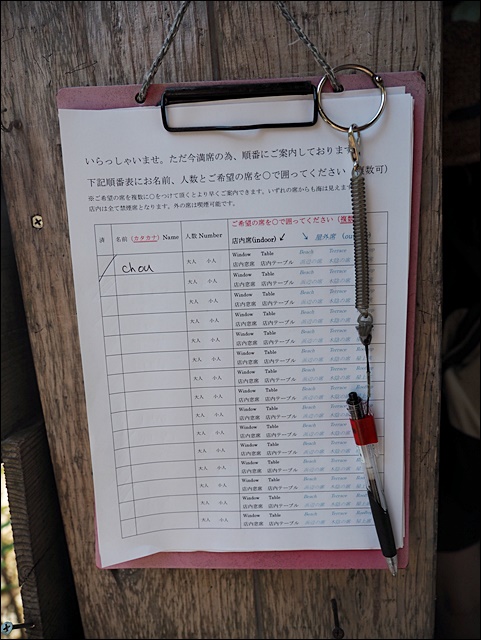 いらっしゃいませ。ただ今満席の為、順番にご案内しております
下記順番表にお名前、人数とご希望の席を○で囲ってください 数可)
※ご希望の席を複数に○をつけて頂くとより早くご案内できます。いずれの席からも海は見えま
店内は全て禁煙席となります。外の席は喫煙可能です。
ご希望の席を○で囲ってください (複数
済 名前 (カタカナ) Name 人数 Number 店内席(indoor) ↙ ↘ 屋外席 (ou
chou 大人 小人 Window Table Beach Terrace
店内窓席 店内テーブル
大人 小人 Window Table Beach Terrace
店内窓席 店内テーブル
大人 小人 Window Table Beach Terrace
店内窓席 店内テーブル
大人 小人 Window Table Beach Terrace
店内窓席 店内テーブル
大人 小人 Window Table Beach Terrace
店内窓席 店内テーブル
大人 小人 Window Table Beach Terrace
店内窓席 店内テーブル
大人 小人 Window Table Beach Terrace
店内窓席 店内テーブル
大人 小人 Window Table Beach Terrace
店内窓席 店内テーブル
大人 小人 Window Table Beach Terrace
店内窓席 店内テーブル
大人 小人 Window Table Beach Terrace
店内窓席 店内テーブル
大人 小人 Window Table Beach Terrace
店内窓席 店内テーブル
大人 小人 Window Table Beach Terrace
店内窓席 店内テーブル
大人 小人 Window Table Beach Terrace
店内窓席 店内テーブル
大人 小人 Window Table Beach Terrace
店内窓席 店内テーブル